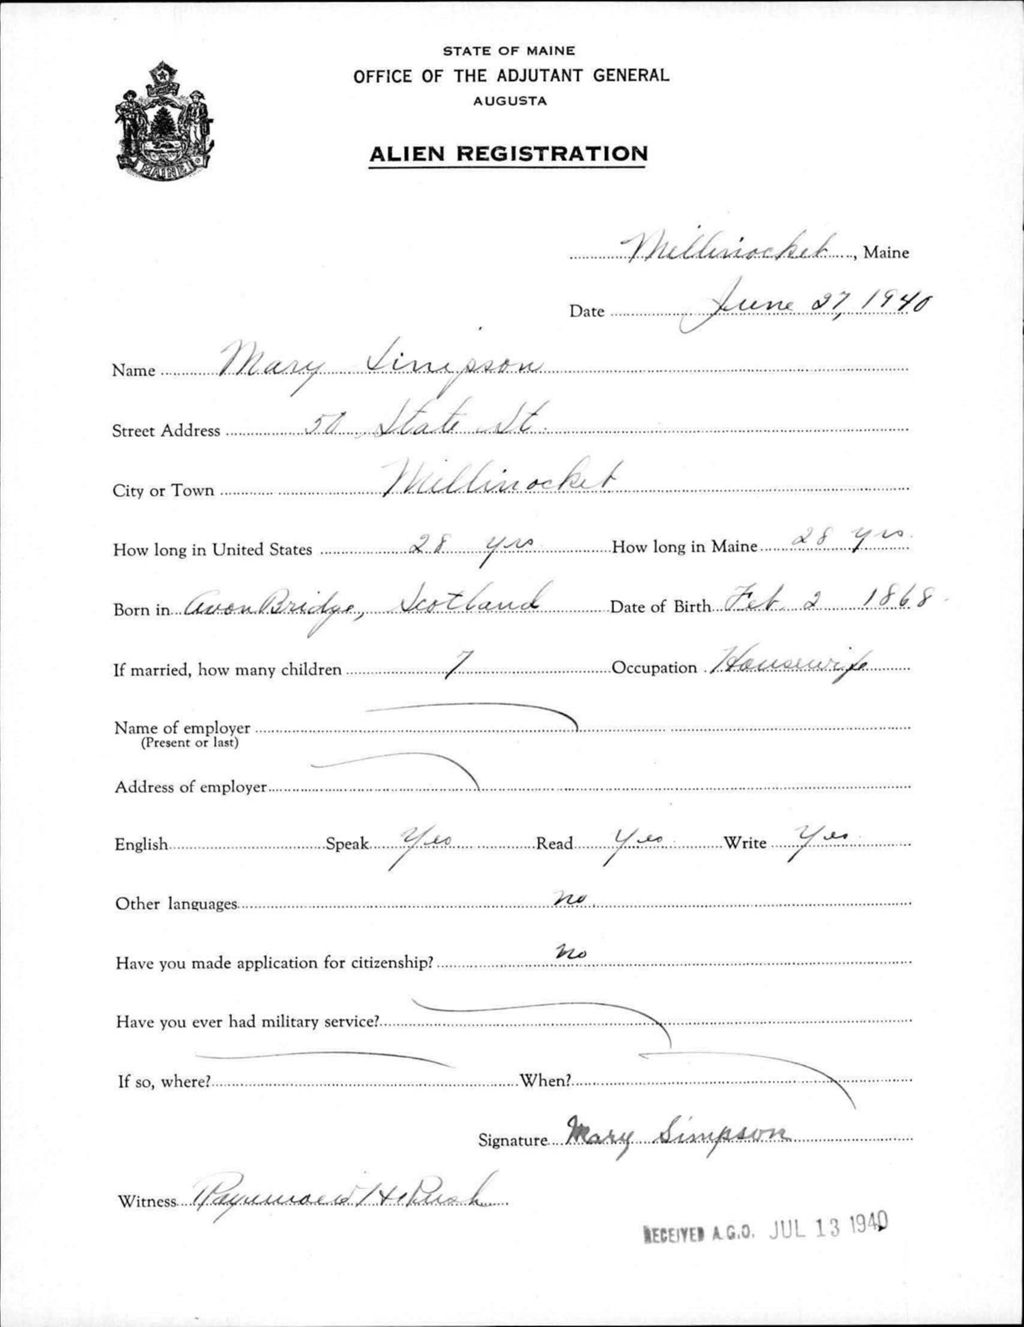 STATE OF MAINE
OFFICE OF THE ADJUTANT GENERAL
AUGUSTA
ALIEN REGISTRATION
MAINE
Millinocket, Maine
Date June 27, 1940
Name Mary Simpson
Street Address State St.
City or Town Millinocket
How long in United States 28 yrs How long in Maine 28 yrs.
Born in Avon Bridge, Scotland Date of Birth Feb. 2 1868.
If married, how many children 7 Occupation Housewife
Name of employer
(Present or last)
Address of employer
English Speak Yes Read Yes Write Yes
Other languages no.
Have you made application for citizenship? no
Have you ever had military service?
If so, where? When?
Signature Mary Simpson
Witness Raymond H. Rush
RECEIVED A.G.O. JUL 13 1940